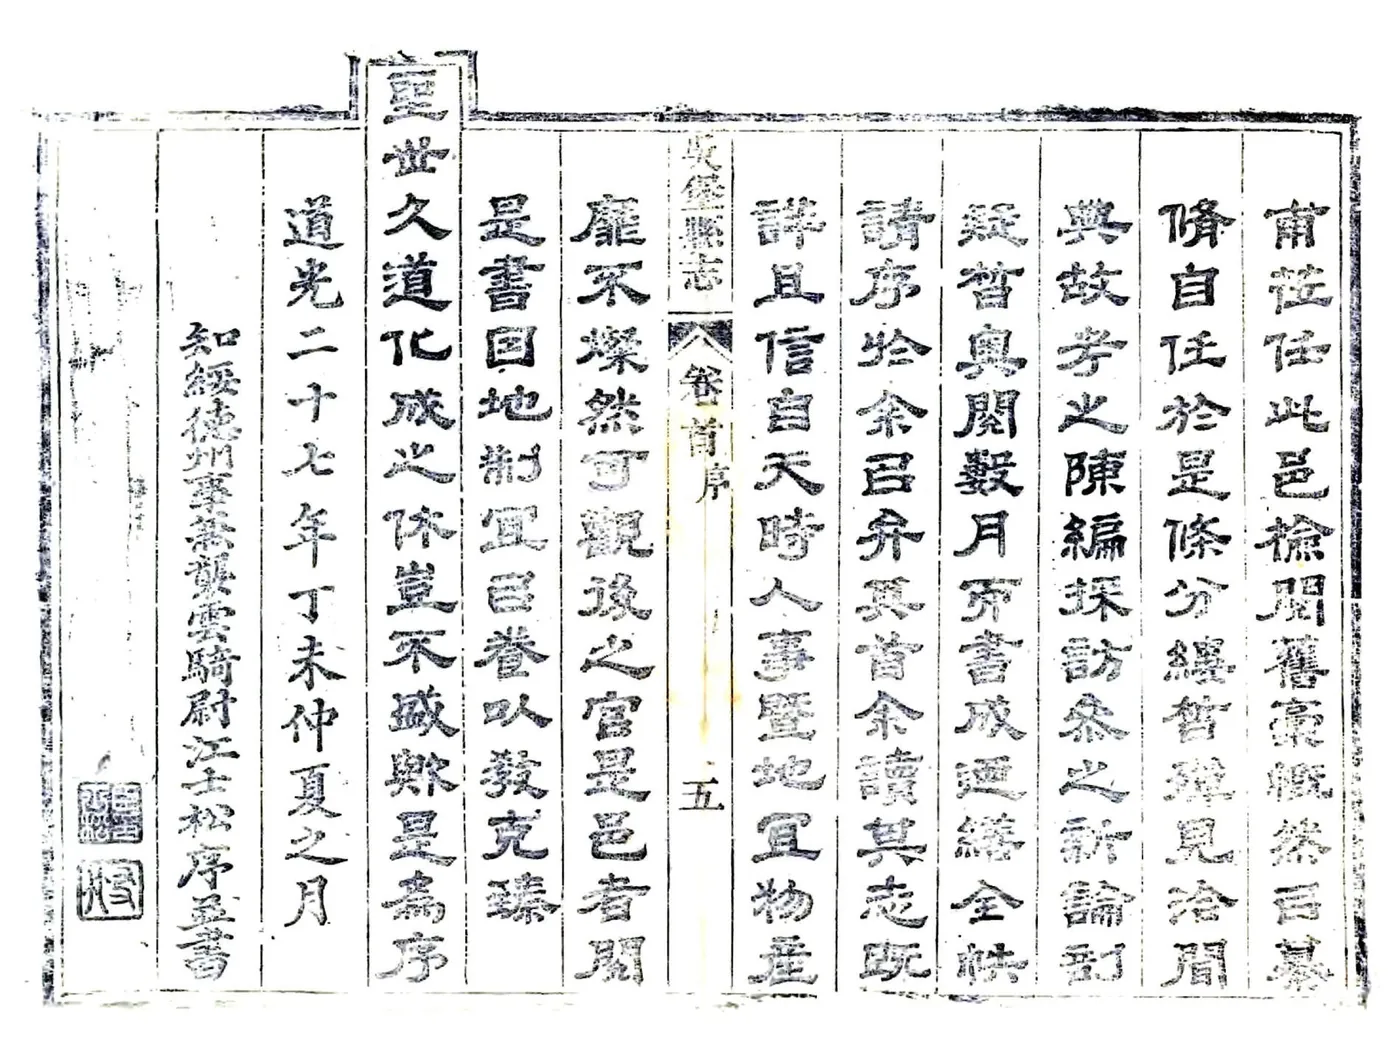 甫莅任此邑檢閱舊稾慨然㠯纂
脩自任於是條分縷晳殫見洽聞
典故考之陳編採訪參之新論剖
疑晳奧閱數月而書成迺繕全帙
請序於余㠯弁其首余讀其志既
詳且信自天時人事暨地宜物產
吳堡縣志 卷首 序 五
靡不燦然可觀後之官是邑者閱
是書因地制宜㠯養以教克臻
聖世久道化成之休豈不盛歟是為序
道光二十七年丁未仲夏之月
知綏德州事兼襲雲騎尉江士松序並書